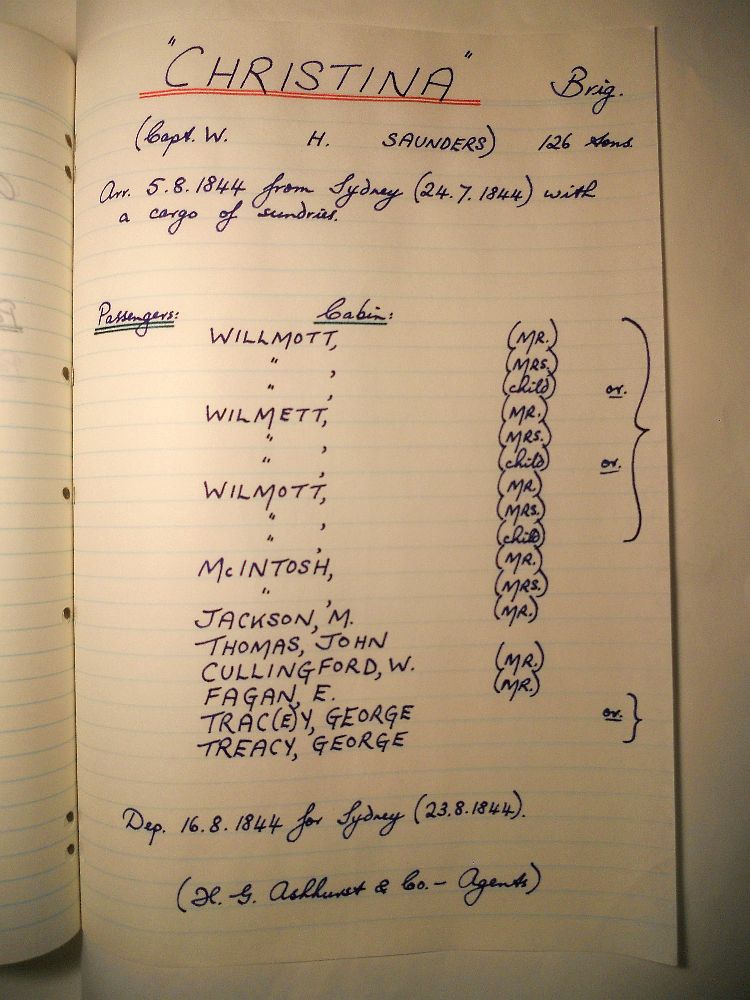 "CHRISTINA" Brig.
(Capt. W. H. SAUNDERS) 126 tons.
Arr. 5.8.1844 from Sydney (24.7.1844) with
a cargo of sundries.
Passengers: Cabin:
WILLMOTT, (MR.)
" , (MRS.)
" , (child) or.
WILMETT, (MR.)
" , (MRS.)
" , (child) or.
WILMOTT, (MR.)
" , (MRS.)
" , (child)
McINTOSH, (MR.)
" , (MRS.)
JACKSON, M. (MR.)
THOMAS, JOHN
CULLINGFORD, W. (MR.)
FAGAN, E. (MR.)
TRAC(E)Y, GEORGE or.
TREACY, GEORGE
Dep. 16.8.1844 for Sydney (23.8.1844).
(H. G. Ashhurst & Co. - Agents)